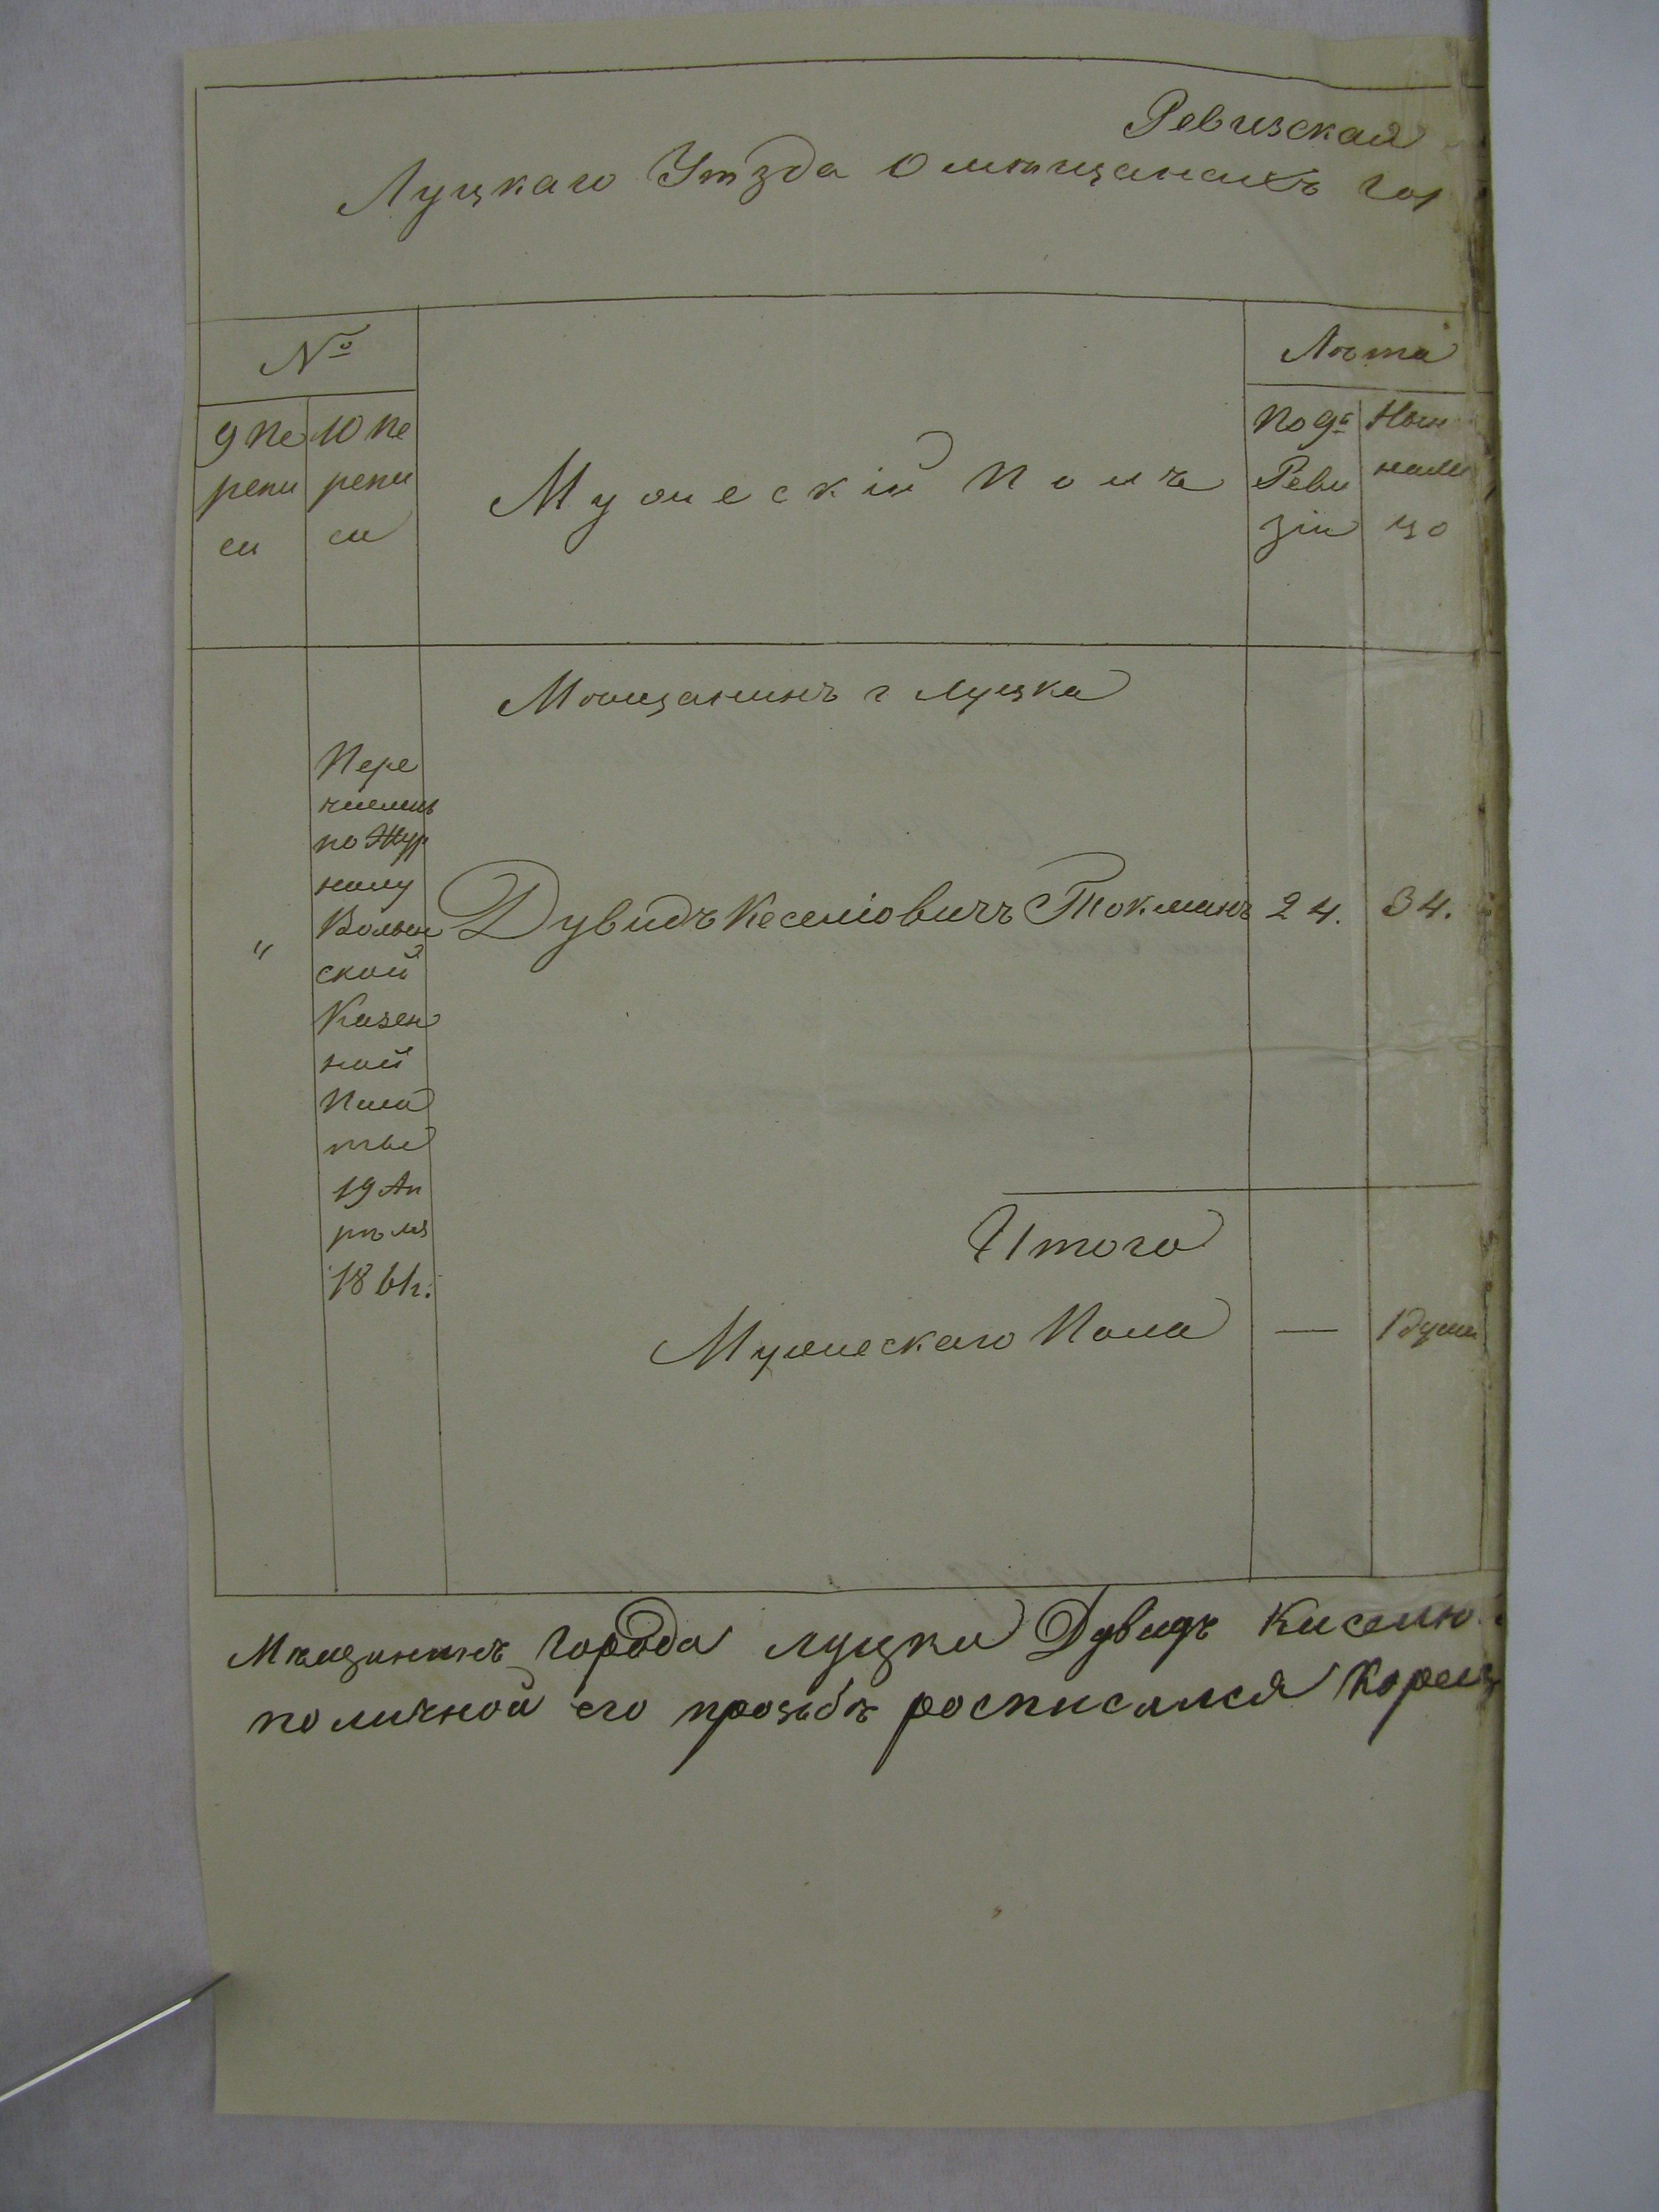 Ревизская
Луцкаго Уѣзда О мѣщанахъ гор
№
Лѣта
9 пе
репи
си
10 пе
репи
си
Мужескій полъ
По 9й
Реви
зіи
Нын
налицо
Мѣщанинъ г Луцка
Пере
численъ
по Жур
налу
Волын
ской
Казен
ной
Пала
ты
19 Ап
рѣля
186
"
Дувидъ Кеселіовичъ Токманъ 24. 34.
Итого
Мужескаго Пола — 1 душа
Мѣщининъ города луцка Дувидъ Киселю
по личной его прозьбѣ росписался Корец